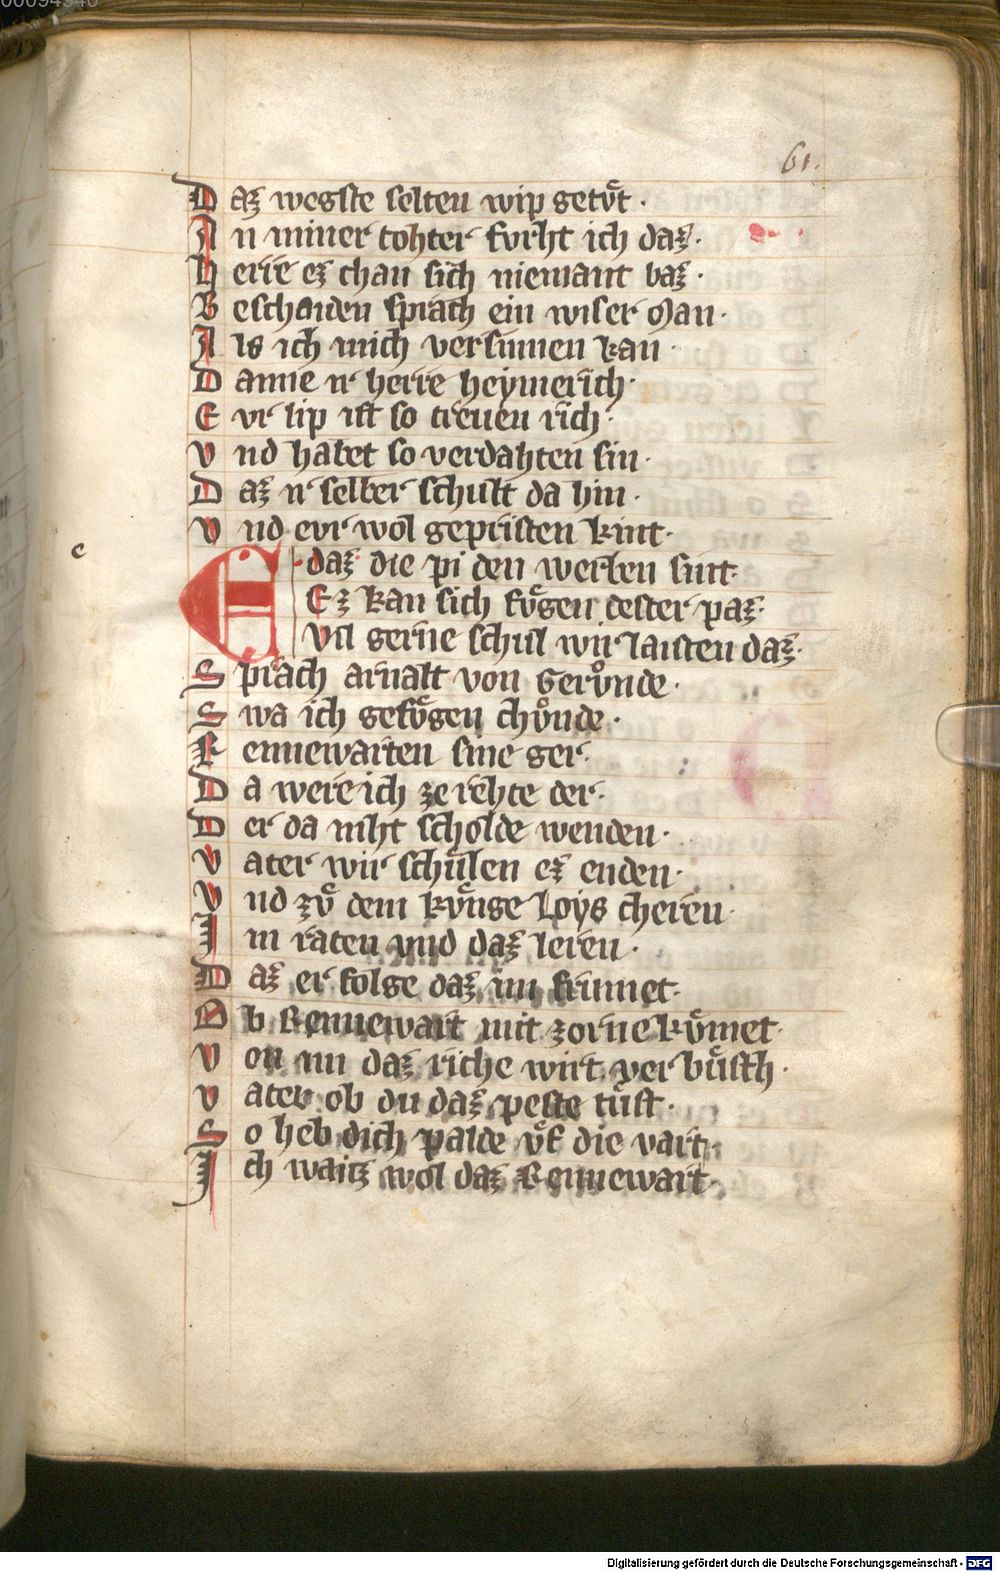 00094946
61.
D az wegste selten wip getuͦt ·
A n miner tohter furht ich daz ·
H erre ez chan sich niemant baz ·
B escheiden sprach ein wiser man ·
A ls ich mich versinnen kan ·
D anne ir herre heymerich ·
E vr lip ist so treuen rich ·
v nd habet so verdahten sin ·
D az ir selber schult da hin ·
v nd evr wol gepristen kint ·
e
E daz die pi den werken sint ·
Ez kan sich fuͤgen dester paz ·
Vil gerne schul wir laisten daz ·
S prach arnalt von Geruͦnde ·
S wa ich gefuͤgen chuͦnde ·
R ennewarten sine ger ·
D a were ich ze rehte der ·
D er da niht scholde wenden ·
V ater wir schuͤlen ez enden ·
V nd zuͦ dem kuͤnge Loys cheren ·
I m raten vnd daz leren ·
D az er folge daz im frumet ·
O b Rennewart mit zorne kuͤmet ·
v on im daz riche wirt ver buͤsth ·
v ater ob du daz peste tuͤst ·
S o heb dich palde vͦf die vart ·
I ch waiz wol daz Rennewart ·
Digitalisierung gefördert durch die Deutsche Forschungsgemeinschaft - DFG